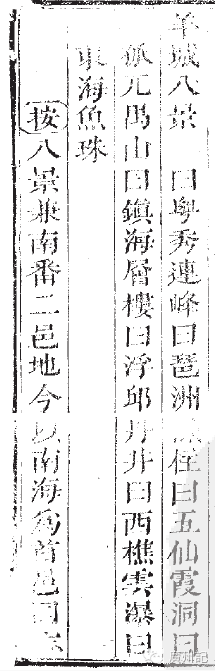 羊城八景 曰粵秀連峰曰琶洲柱曰五仙霞洞曰
孤兀禺山曰鎮海層樓曰浮邱丹井曰西樵雲瀑曰
東海魚珠
按八景兼南番二邑地今以南海為首邑